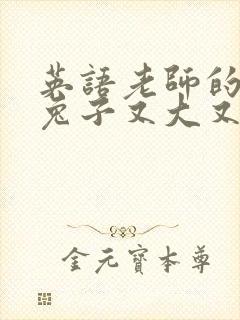 英語老師的
兔子又大又
金元寶本尊